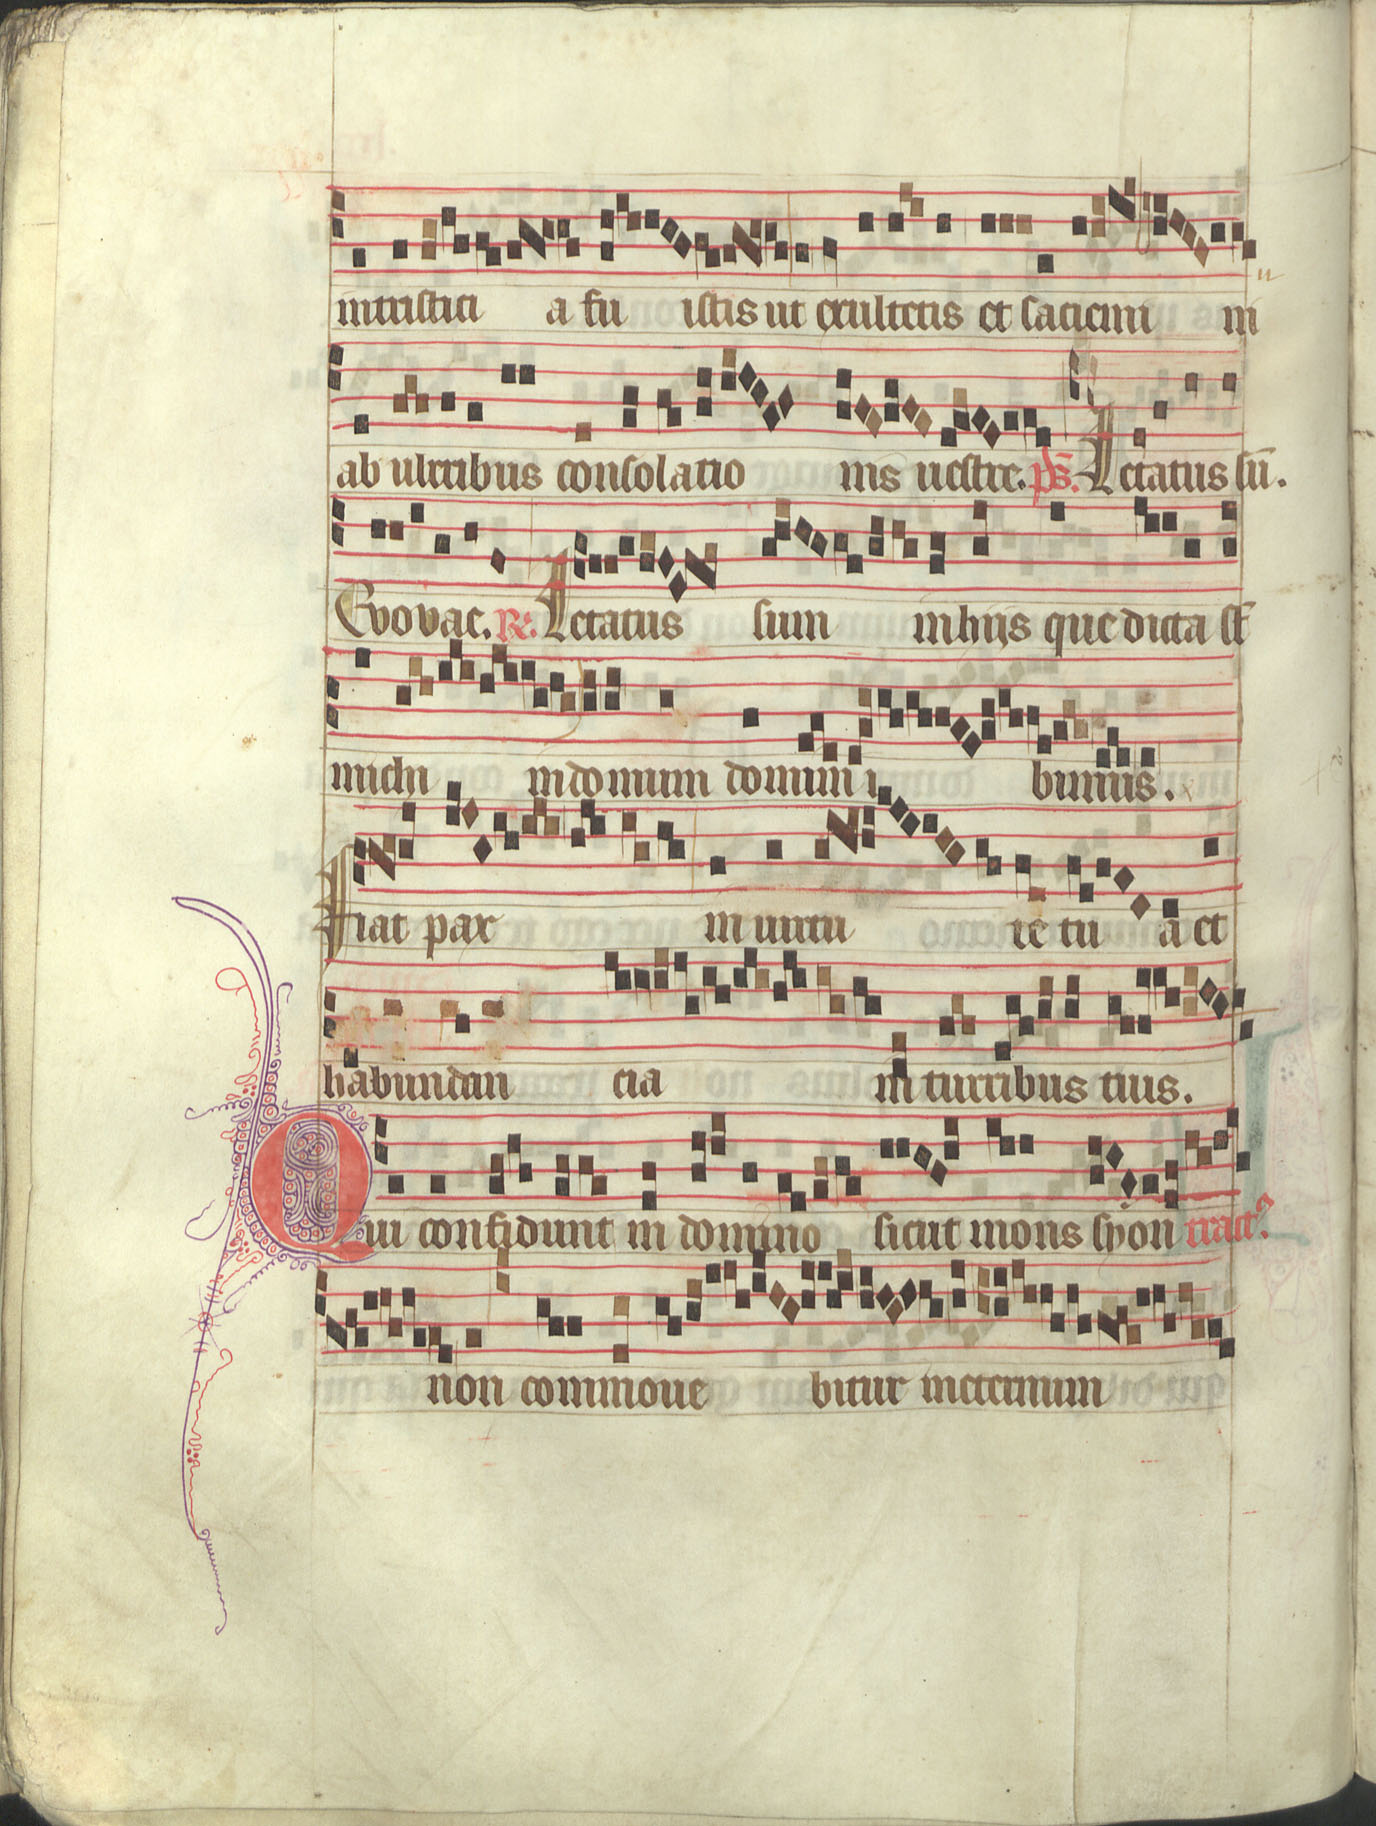 intristici a fu istis ut exultetis et saciemi ni
ab ulrribus consolatio nis uestre. ps. Letatus sū.
Evovae. R. Letatus sum in hijs que dicta st̄
michi in domum domini i bimus.
Fiat pax in uirtu te tu a et
habundan cia in turribus tuis.
Qui confidunt in domino sicut mons syon tract᷒
non commoue bitur ineternum